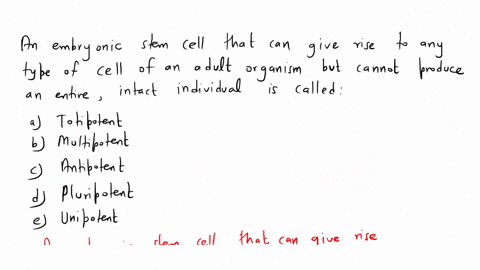 An embryonic stem cell that can give rise to any
type of cell of an adult organism but cannot produce
an entire, intact individual is called:
a) Totipotent
b) Multipotent
c) Antipotent
d) Pluripotent
e) Unipotent
stem cell that can give rise